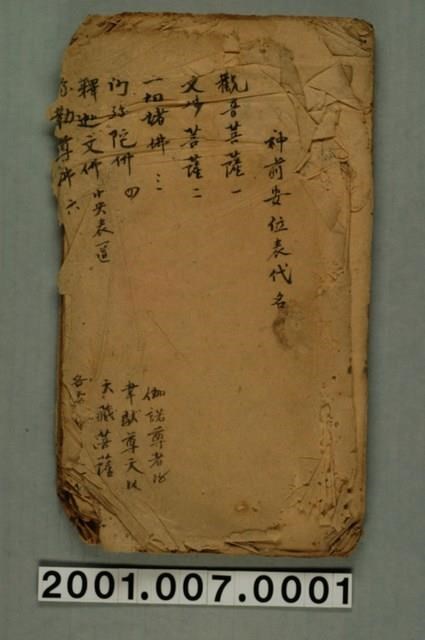 神前安位表代名
觀音菩薩 一
文妙菩薩 二
一切諸佛 三
阿弥陀佛 四
釋迦文佛 中央表 一道
弥勒尊佛 六
伽諾尊者
韋馱尊天
天藏菩薩
各
2001.007.0001